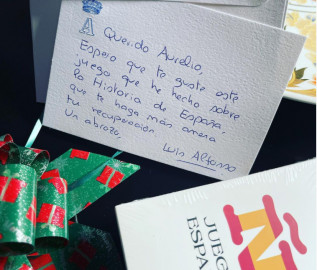 A
Querido Aurelio,
Espero que te guste este
juego que he hecho sobre
la Historia de España,
que te haga más amena
tu recuperación
Un abrazo,
Luis Alfonso
Ñ
JUEG
ESPA